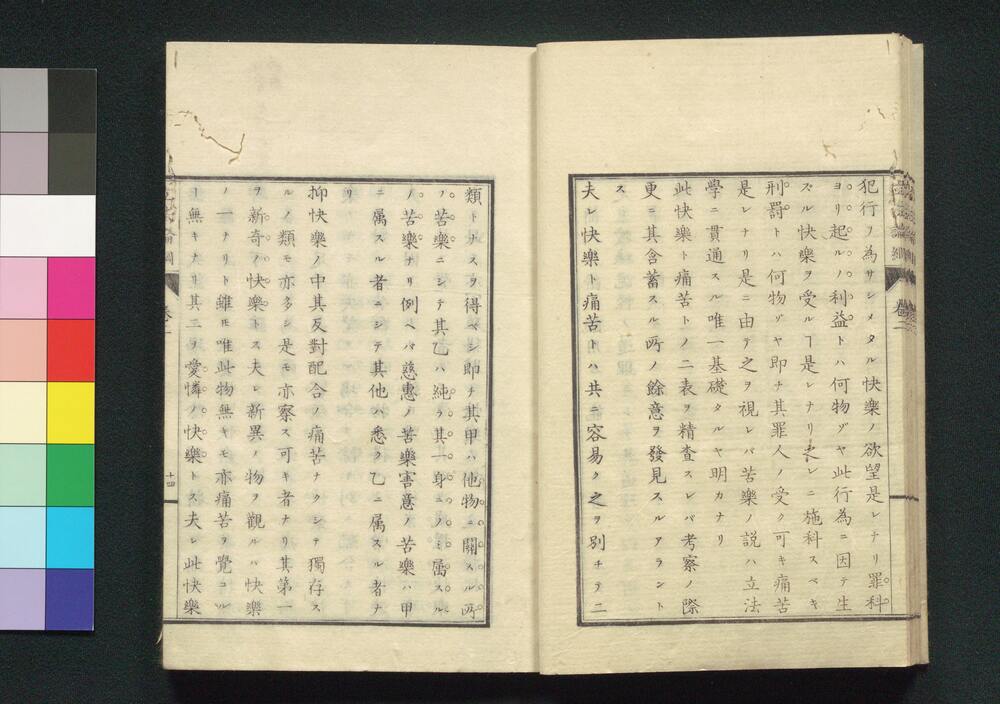 犯行ヲ為サシメタル快樂ノ欲望是レナリ罪科
ヨリ起ルノ利益トハ何物ゾヤ此行為ニ因テ生
ズル快樂ヲ受ルヿ是レナリ之レニ施科スベキ
刑罰トハ何物ゾヤ即チ其罪人ノ受ク可キ痛苦
是レナリ是ニ由テ之ヲ視レバ苦樂ノ説ハ立法
學ニ貫通スル唯一基礎タルヤ明カナリ
此快樂ト痛苦トノ二表ヲ精査スレバ考察ノ際
更ニ其含蓄スル所ノ餘意ヲ發見スルアラント
ス
夫レ快樂ト痛苦トハ共ニ容易ク之ヲ別チテ二
類トナスヲ得ベシ即チ其甲ハ他物ニ關スル所
ノ苦樂ニシテ其乙ハ純ラ其一身ニノミ属スル
ノ苦樂ナリ例ヘバ慈惠ノ苦樂害意ノ苦樂ハ甲
ニ属スル者ニシテ其他ハ悉ク乙ニ属スル者ナ
リ
抑快樂ノ中其反對配合ノ痛苦ナクシテ獨存ス
ルノ類モ亦多シ是モ亦察ス可キ者ナリ其第一
ヲ新奇ノ快樂トス夫レ新異ノ物ヲ觀ルハ快樂
ノ一ナリト雖モ唯此物無キモ亦痛苦ヲ覺ユル
ー無キナリ其二ヲ愛憐ノ快樂トス夫レ此快樂
論綱
卷二
十四